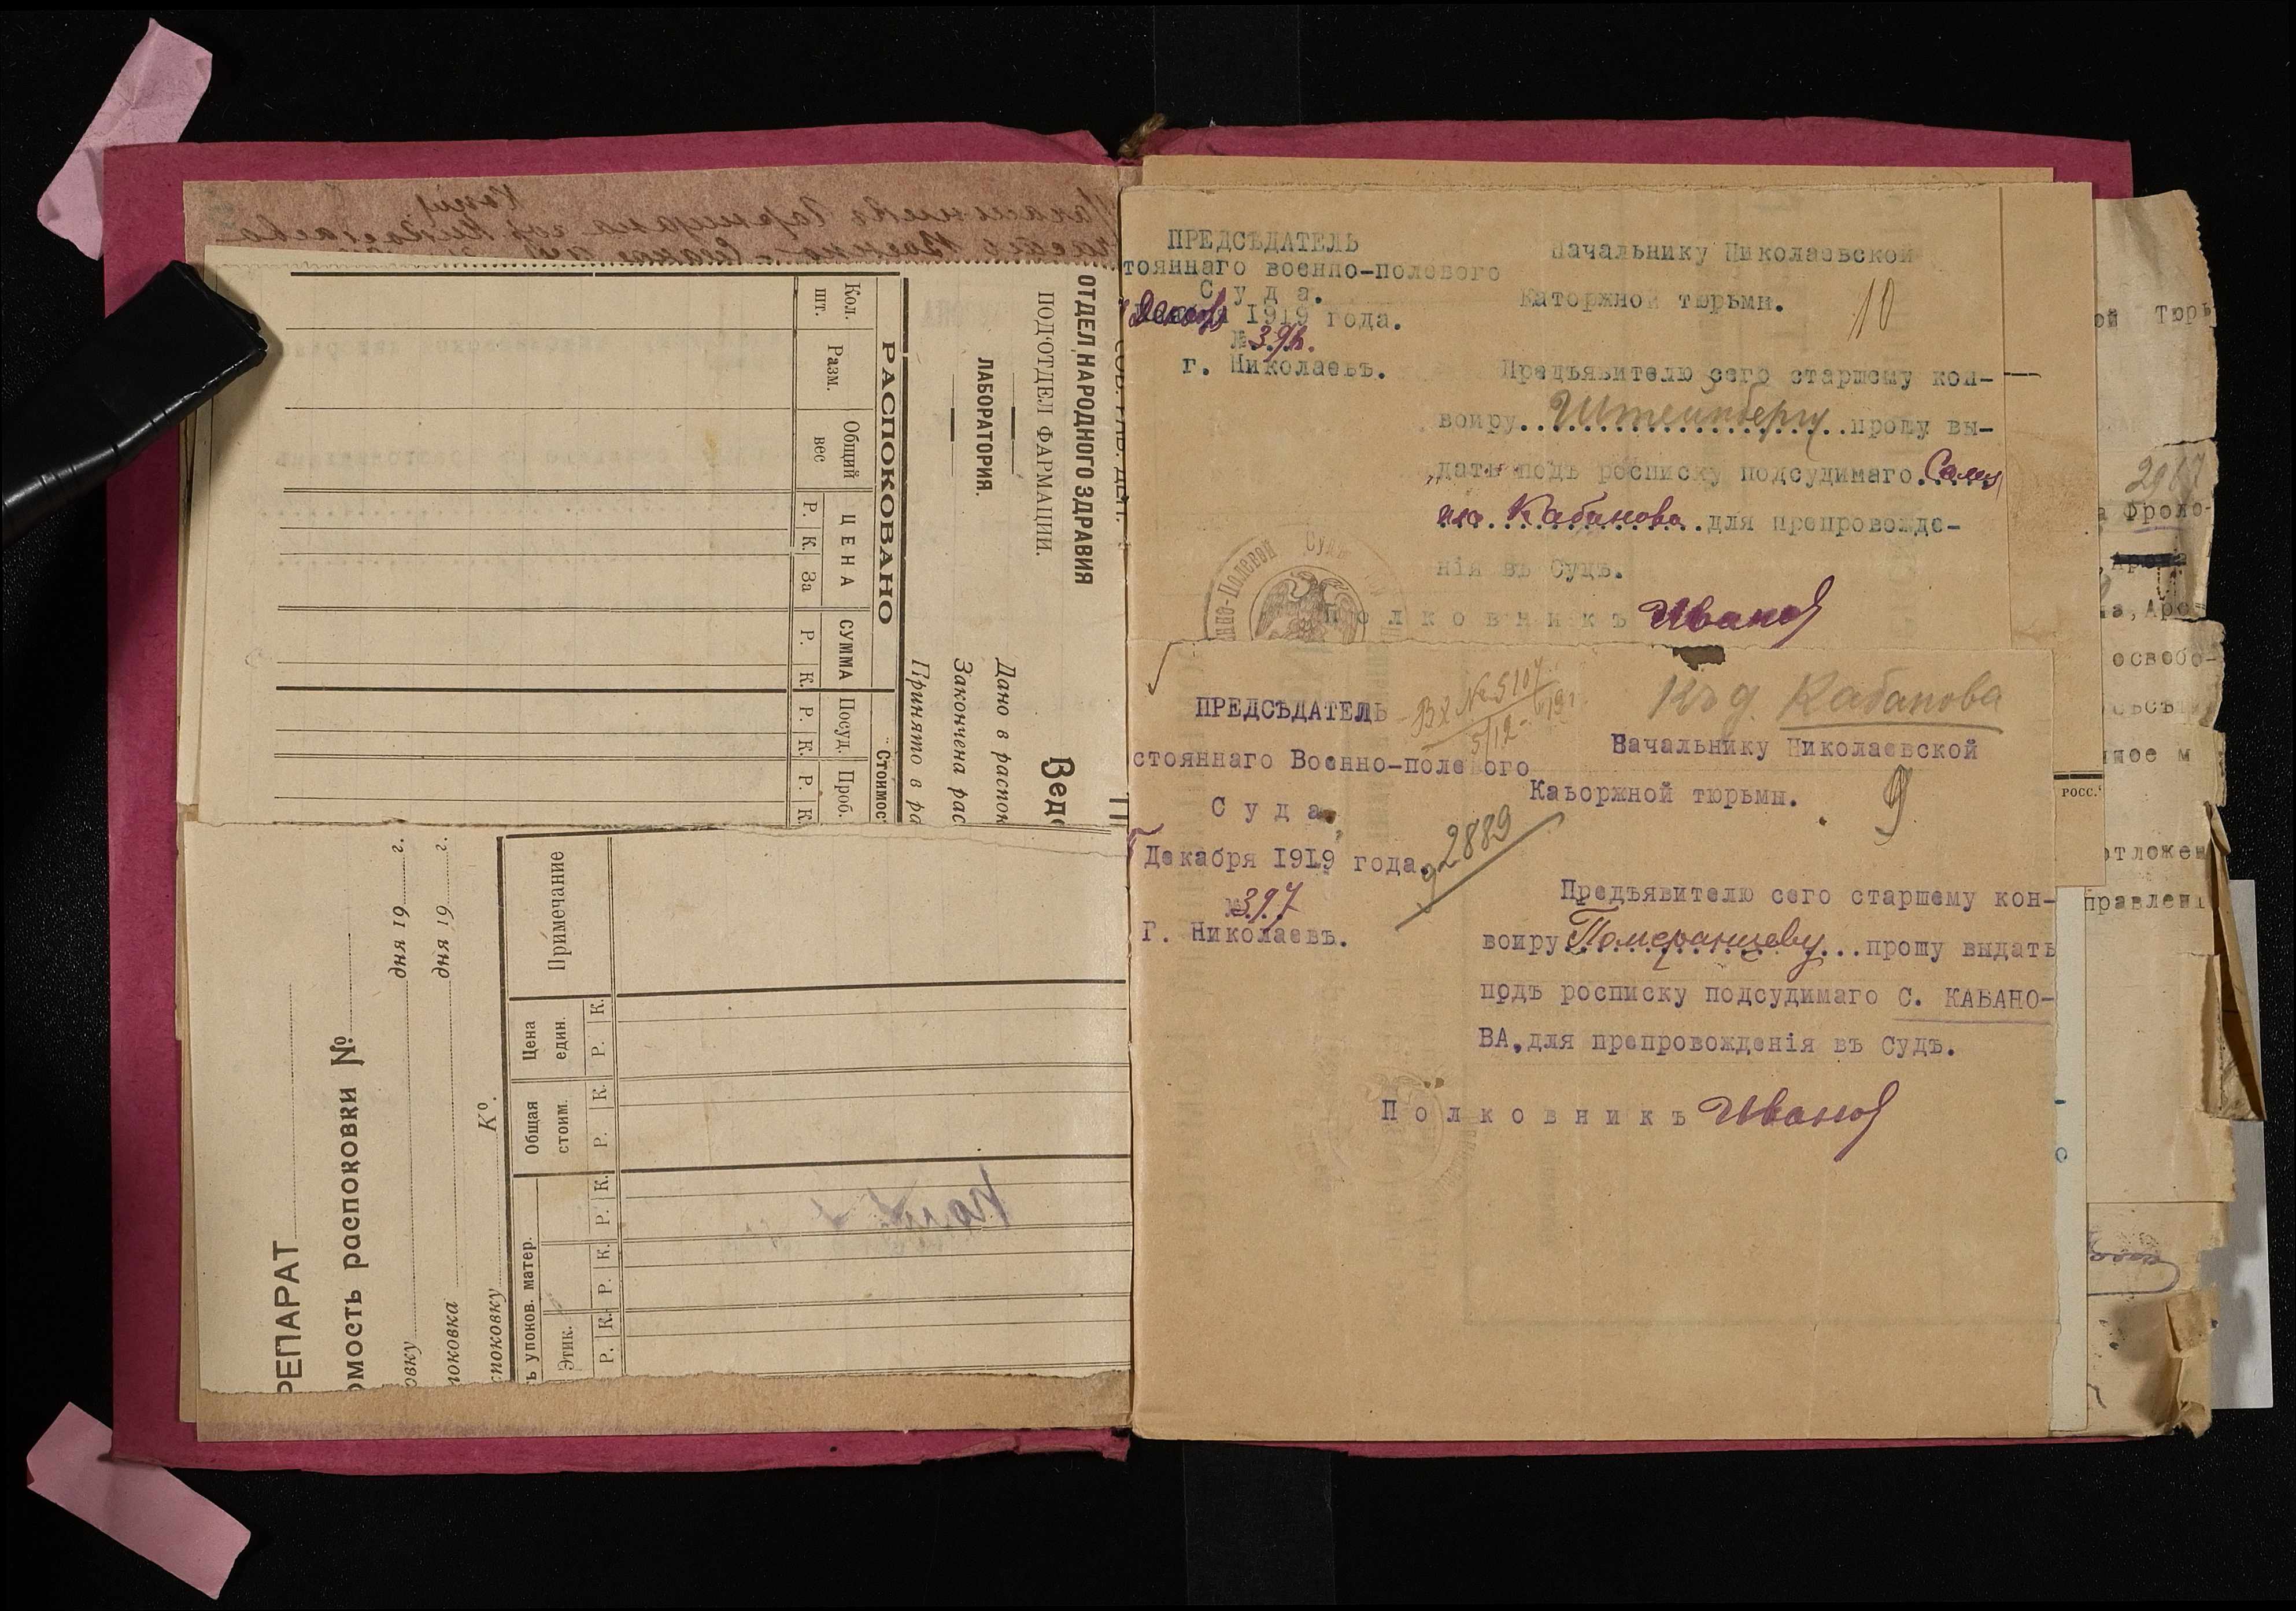 ОТДЕЛ НАРОДНОГО ЗДРАВИЯ
ПОД'ОТДЕЛ ФАРМАЦИИ.
ЛАБОРАТОРИЯ.
Вед
Дано в распок
Закончена рас
Принято в ра
РАСПОКОВАНО
Стоимос
Кол.
шт.
Разм.
Общий
вес
ЦЕНА
Р. К. За
СУММА
Р. К.
Посуд.
Р. К.
Проб.
Р. К.
РЕПАРАТ
омость распоковки №
овку дня 19 г.
поковка дня 19 г.
споковку К°.
ь упоков. матер.
Этик.
Р. К. Р. К. Р. К.
Общая
стоим.
Р. К.
Цена
един.
Р. К.
Примечание
ПРЕДСѢДАТЕЛЬ
тояннаго военно-полевого
Суда.
1919 года.
г. Николаевъ.
Начальнику Николаевской
каторжной тюрьмы.
10
Предъявителю сего старшему кон-
воиру Штейнбергу прошу вы-
дать подъ росписку подсудимаго
Кабанова для препровожде-
нія въ Судъ.
Полковникъ Иванов
ПРЕДСѢДАТЕЛЬ
стояннаго Военно-полевого
Суда
Декабря 1919 года.
№ 397
Г. Николаевъ.
Вх № 5107
5/12-19г
2889
Къ д. Кабанова
Начальнику Николаевской
Каьоржной тюрьмы.
9
Предъявителю сего старшему кон-
воиру Померанцеву прошу выдать
подъ росписку подсудимаго С. КАБАНО-
ВА,для препровожденія въ Судъ.
Полковникъ Иванов
ой Тюрь
2967
а Фроло-
освобо-
РОСС.
отложен
правлені